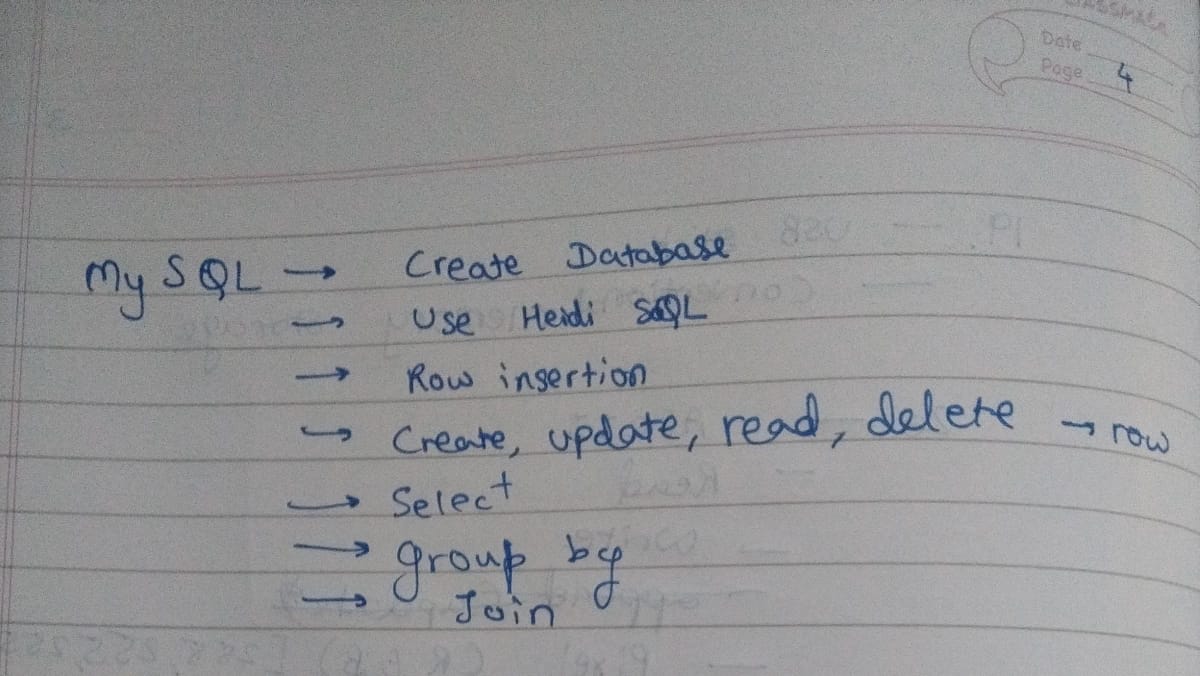 classmate
Date
Page 4
My SQL → Create Database
→ Use Heidi SQL
→ Row insertion
→ Create, update, read, delete → row
→ Select
→ group by
→ Join